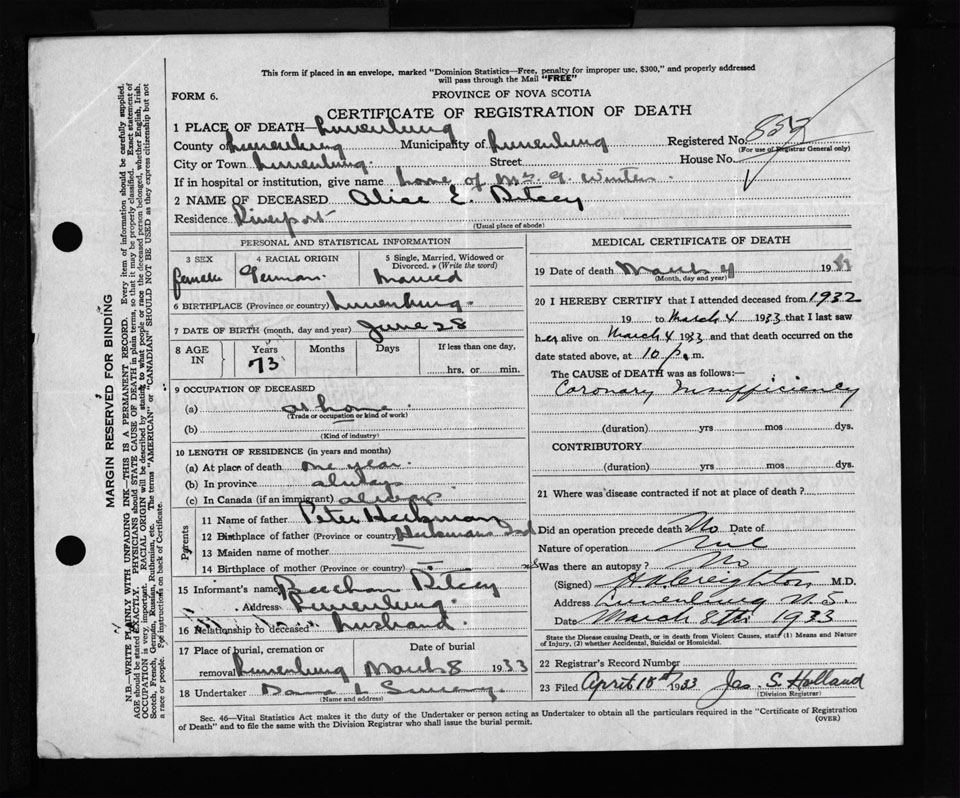 This form if placed in an envelope, marked "Dominion Statistics—Free, penalty for improper use, $300," and properly addressed
will pass through the Mail "FREE"
FORM 6.
PROVINCE OF NOVA SCOTIA
CERTIFICATE OF REGISTRATION OF DEATH
1 PLACE OF DEATH— Lunenburg
County of Lunenburg Municipality of Lunenburg Registered No. 852
(For use of Registrar General only)
City or Town Lunenburg. Street House No.
If in hospital or institution, give name home of Mrs. G. Winters
2 NAME OF DECEASED Alice E. Ritcey
Residence Riverport
(Usual place of abode)
PERSONAL AND STATISTICAL INFORMATION
3 SEX 4 RACIAL ORIGIN 5 Single, Married, Widowed or Divorced. (Write the word)
female German. married
6 BIRTHPLACE (Province or country) Lunenburg.
7 DATE OF BIRTH (month, day and year) June 28
8 AGE IN Years Months Days If less than one day,
73 hrs. or min.
9 OCCUPATION OF DECEASED
(a) at home.
(Trade or occupation or kind of work)
(b)
(Kind of industry)
10 LENGTH OF RESIDENCE (in years and months)
(a) At place of death one year.
(b) In province always
(c) In Canada (if an immigrant) always
Parents
11 Name of father Peter Heckman
12 Birthplace of father (Province or country) Heckmans Isd
13 Maiden name of mother
14 Birthplace of mother (Province or country)
15 Informant's name Beechan Ritcey
Address Lunenburg.
16 Relationship to deceased husband.
17 Place of burial, cremation or removal Date of burial
Lunenburg March 8 1933
18 Undertaker
(Name and address)
MEDICAL CERTIFICATE OF DEATH
19 Date of death March 4 1933
(Month, day and year)
20 I HEREBY CERTIFY that I attended deceased from 1932
19 to March 4 1933 that I last saw
her alive on March 4 1933 and that death occurred on the
date stated above, at 10 p. m.
The CAUSE of DEATH was as follows:—
Coronary Insufficiency
(duration) yrs mos dys.
CONTRIBUTORY
(duration) yrs mos dys.
21 Where was disease contracted if not at place of death?
Did an operation precede death No Date of
Nature of operation nil
Was there an autopsy? No
(Signed) H A Creighton M.D.
Address Lunenburg N.S.
Date March 8th 1933
State the Disease causing Death, or in death from Violent Causes, state (1) Means and Nature
of Injury, (2) whether Accidental, Suicidal or Homicidal.
22 Registrar's Record Number
23 Filed April 18th 1933 Jas. S. Holland
(Division Registrar)
Sec. 46—Vital Statistics Act makes it the duty of the Undertaker or person acting as Undertaker to obtain all the particulars required in the "Certificate of Registration
of Death" and to file the same with the Division Registrar who shall issue the burial permit.
(OVER)
MARGIN RESERVED FOR BINDING
N.B.—WRITE PLAINLY WITH UNFADING INK—THIS IS A PERMANENT RECORD. Every item of information should be carefully supplied.
AGE should be stated EXACTLY. PHYSICIANS should STATE CAUSE OF DEATH in plain terms, so that it may be properly classified. Exact statement of
OCCUPATION is very important. RACIAL ORIGIN will be described by stating to what people or race the deceased person belonged, whether English, Irish,
Scotch, French, German, Russian, Ruthenian, etc. The terms "AMERICAN" or "CANADIAN" SHOULD NOT BE USED as they express citizenship but not
a race or people. For instructions on back of Certificate.